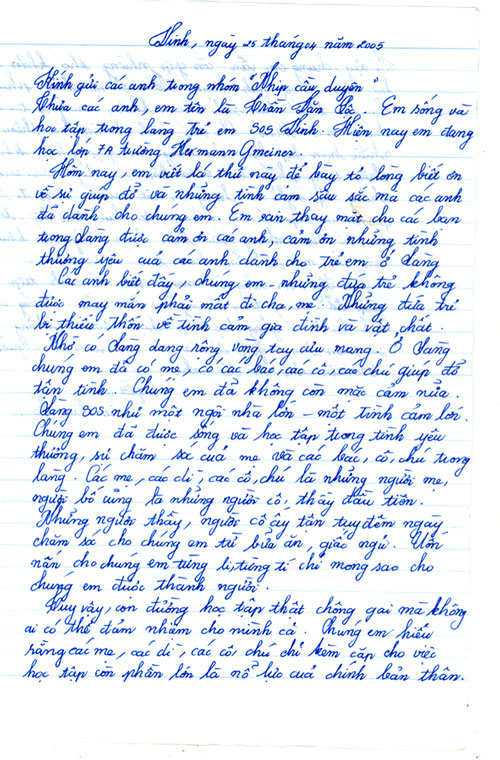 Vinh, ngày 25 tháng 04 năm 2005
Kính gửi các anh trong nhóm "Nhịp cầu duyên"
Thưa các anh, em tên là Trần Văn. Em sống và
học tập trong làng trẻ em SOS Vinh. Hiện nay em đang
học lớp 7A trường Hermann Gmeiner.
Hôm nay, em viết lá thư này để bày tỏ lòng biết ơn
về sự giúp đỡ và những tình cảm sâu sắc mà các anh
đã dành cho chúng em. Em xin thay mặt cho các bạn
trong Làng được cảm ơn các anh, cảm ơn những tình
thương yêu của các anh dành cho trẻ em ở Làng
Các anh biết đấy, chúng em - những đứa trẻ không
được may mắn phải mất đi cha, mẹ. Những đứa trẻ
bị thiếu thốn về tình cảm gia đình và vật chất.
Nhờ có Làng dang rộng vòng tay cưu mang. Ở Làng
chúng em đã có mẹ, có các bác, các cô, các chú giúp đỡ
tận tình. Chúng em đã không còn mặc cảm nữa.
Làng SOS như một ngôi nhà lớn - một tình cảm lớn.
Chúng em đã được sống và học tập trong tình yêu
thương, sự chăm sóc của mẹ và các bác, cô, chú trong
làng. Các mẹ, các dì, các cô, chú là những người mẹ,
người bố cũng là những người cô, thầy đầu tiên.
Những người thầy, người cô ấy tận tụy đêm ngày
chăm sóc cho chúng em từ bữa ăn, giấc ngủ. Uốn
nắn cho chúng em từng li, từng tí chỉ mong sao cho
chúng em được thành người.
Tuy vậy, con đường học tập thật chông gai mà không
ai có thể đảm nhiệm cho mình cả. Chúng em hiểu
rằng các mẹ, các dì, các cô, chú chỉ kèm cặp cho việc
học tập còn phần lớn là nổ lực của chính bản thân.